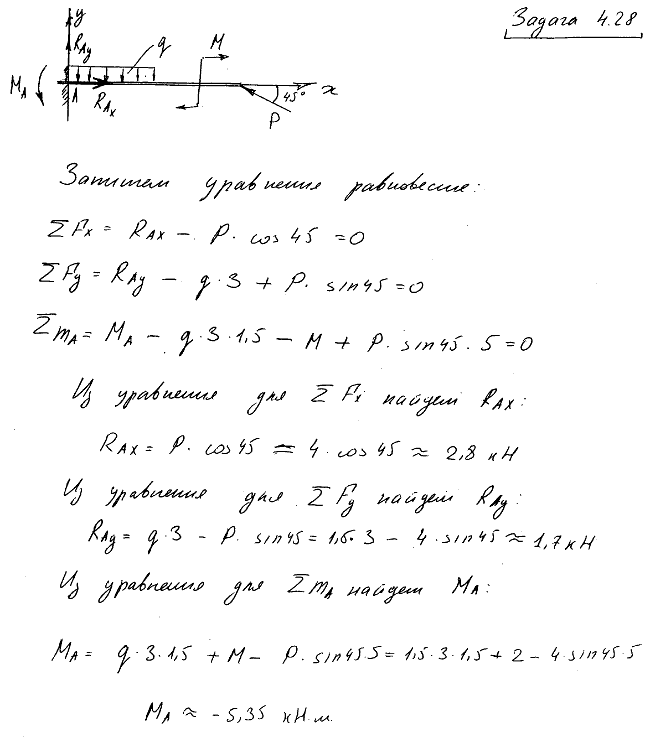 Задача 4.28
y
R_Ay
q
M
M_A
A
R_Ax
45°
x
P
Запишем уравнения равновесия:
ΣFx = R_Ax − P · cos 45 = 0
ΣFy = R_Ay − q · 3 + P · sin45 = 0
Σm_A = M_A − q · 3 · 1,5 − M + P · sin45 · 5 = 0
Из уравнения для ΣFx найдем R_Ax:
R_Ax = P · cos45 = 4 · cos45 ≈ 2,8 кН
Из уравнения для ΣFy найдем R_Ay:
R_Ay = q · 3 − P · sin45 = 1,5 · 3 − 4 · sin45 ≈ 1,7 кН
Из уравнения для Σm_A найдем M_A:
M_A = q · 3 · 1,5 + M − P · sin45 · 5 = 1,5 · 3 · 1,5 + 2 − 4 · sin45 · 5
M_A ≈ −5,35 кН·м.